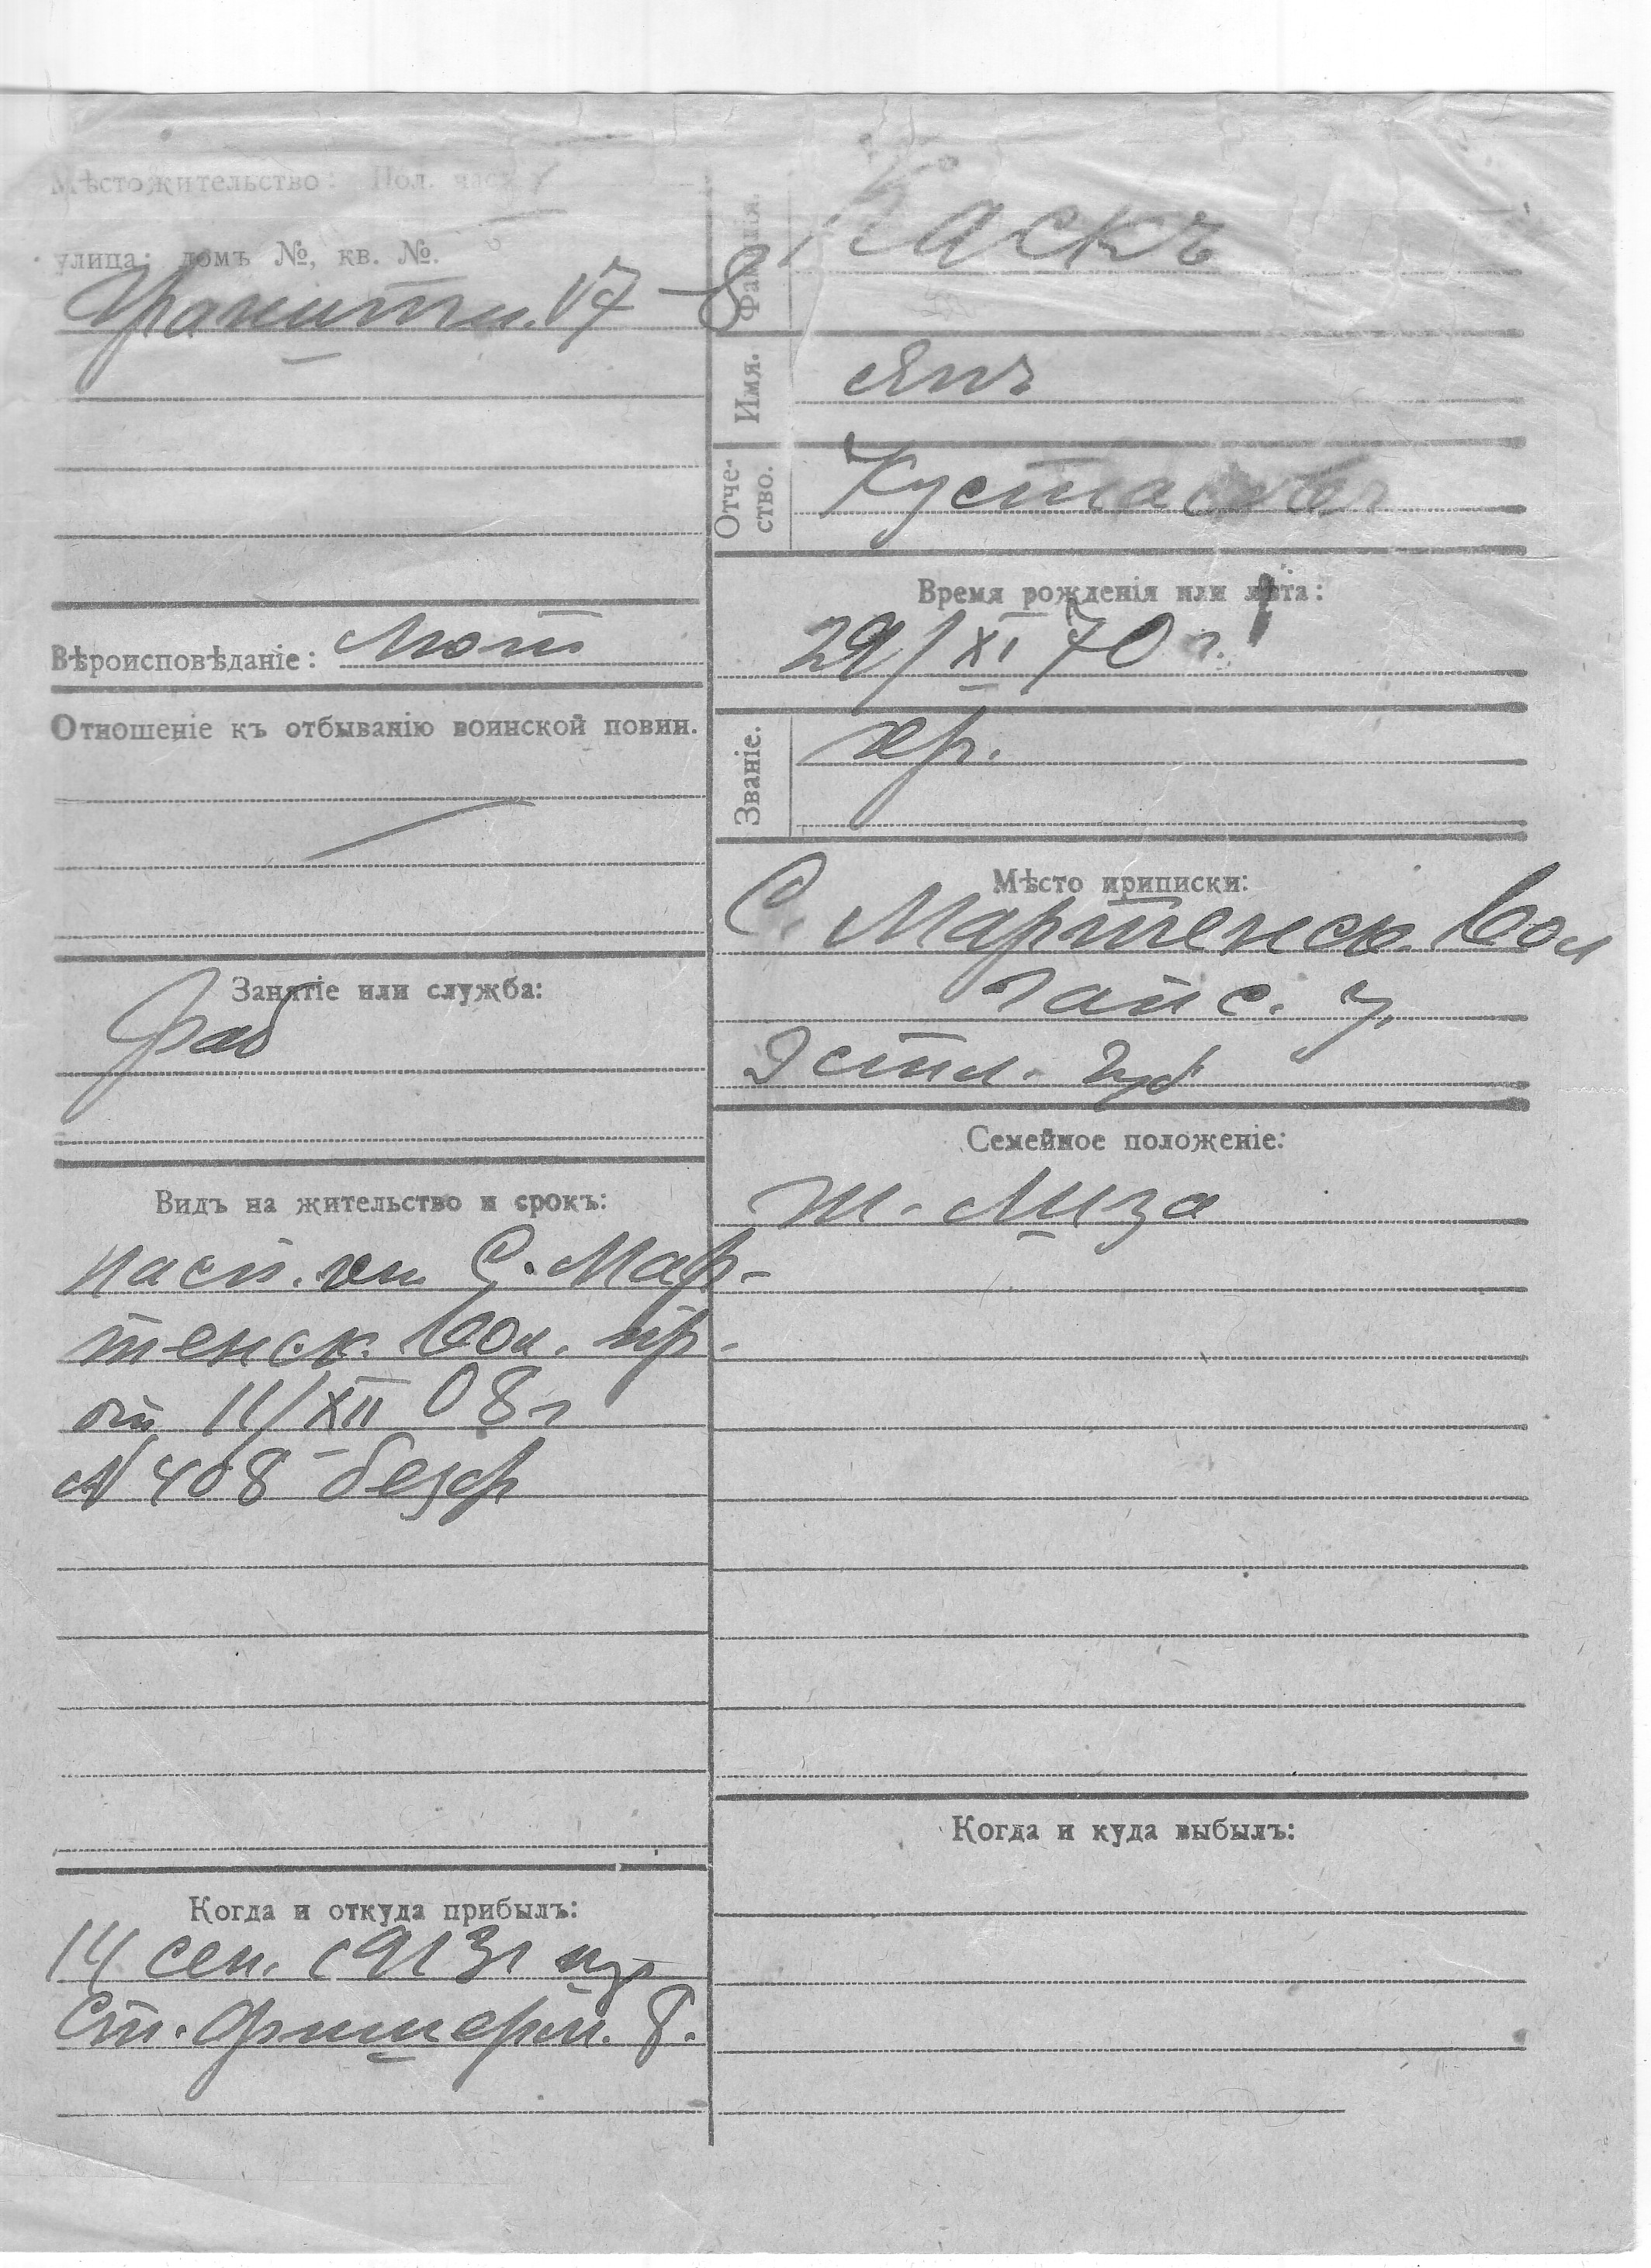 Мѣстожительство: Пол. часть
улица; домъ №, кв. №.
Гранитн. 17 – 8
Вѣроисповѣданіе: Лют
Отношеніе къ отбыванію воинской повин.
Занятіе или служба:
раб
Видъ на жительство и срокъ:
пасп. С. Мар-
тенск. вол. пр.
от 11/XII 08 г
№ 408 безср
Когда и откуда прибылъ:
14 сен. 1913 г из
Ст.
Фамилія.
Каскъ
Имя.
Янъ
Отче-
ство.
Густавовъ
Время рожденія или лѣта:
29/XI 70 г.
Званіе.
кр.
Мѣсто приписки:
С. Мартенск. вол
Гапс. у.
Эстл. губ
Семейное положеніе:
ж. Лиза
Когда и куда выбылъ: